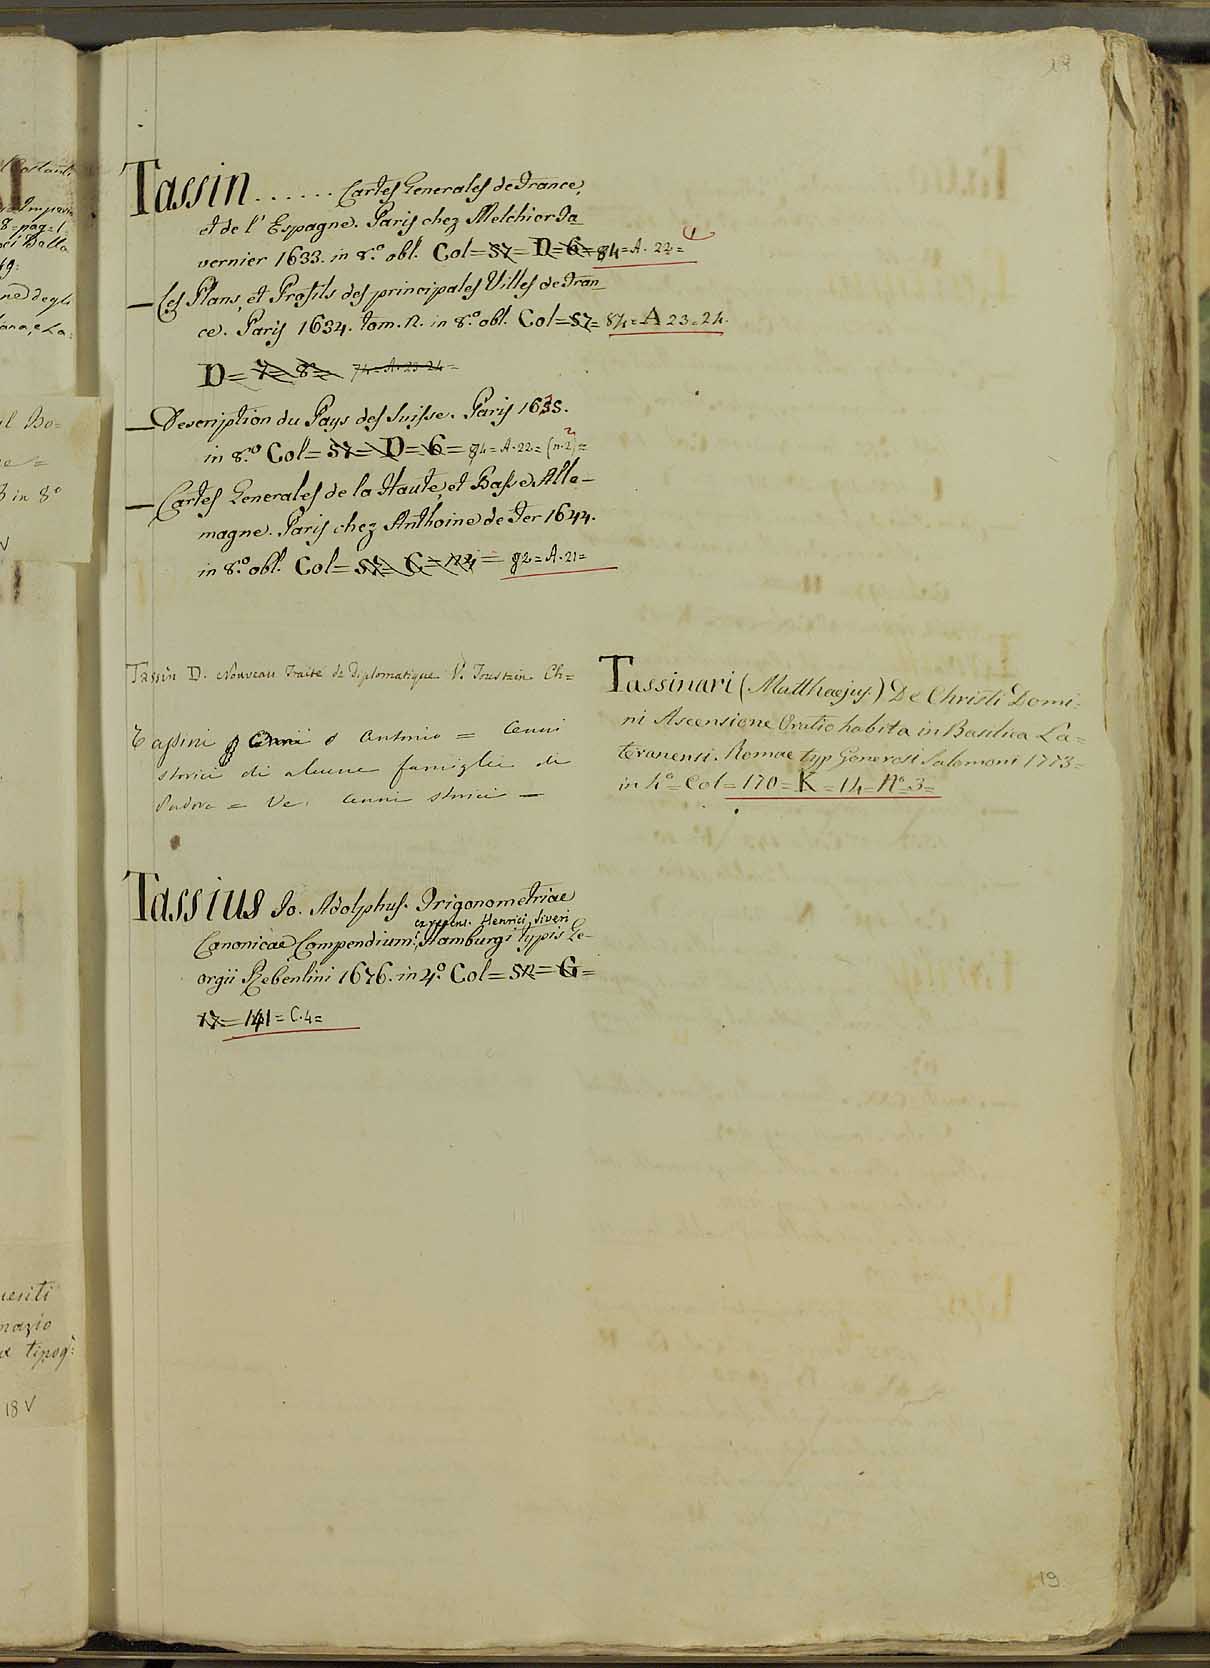 19
Tassin . . . . . . Cartes Generales de France,
et de l' Espagne. Paris chez Melchior Ta
vernier 1633. in 8.º obl. Col = 57 = D = 6 = 84 = A. 22 =
— Les Plans, et Profils des principales Villes de Fran
ce. Paris 1634. tom. 2. in 8.º obl. Col = 57 = 84 = A 23 = 24.
D = 7 = 8 = 74 = A. 23 24 =
— Description du Pays des Suisse. Paris 1635.
in 8.º Col = 57 = D = 6 = 84 = A. 22 = (n. 2) =
— Cartes Generales de la Haute, et Basse Alle-
magne. Paris chez Anthoine de Fer 1644.
in 8.º obl. Col = 57 = C = 124 = 82 = A. 21 =
Tassin D. Nouveau Traité de Diplomatique V. Toustain Ch =
Tassini Antonio = Cenni
storici di alcune famiglie di
Padova = Ve. Cenni storici —
Tassinari (Matthaejus.) De Christi Domi-
ni Ascensione Oratio habita in Basilica La =
teranensi. Romae typ Generosi Salomoni 1773 =
in 4º = Col = 170 = K = 14 = Nº 3 =
Tassius Jo. Adolphus. Trigonometriae
expens. Henrici Siveri
Canonicae Compendium. Hamburgi typis Ge-
orgii Rebenlini 1676. in 4º. Col = 52 = G =
17 = 141 = C. 4 =
19